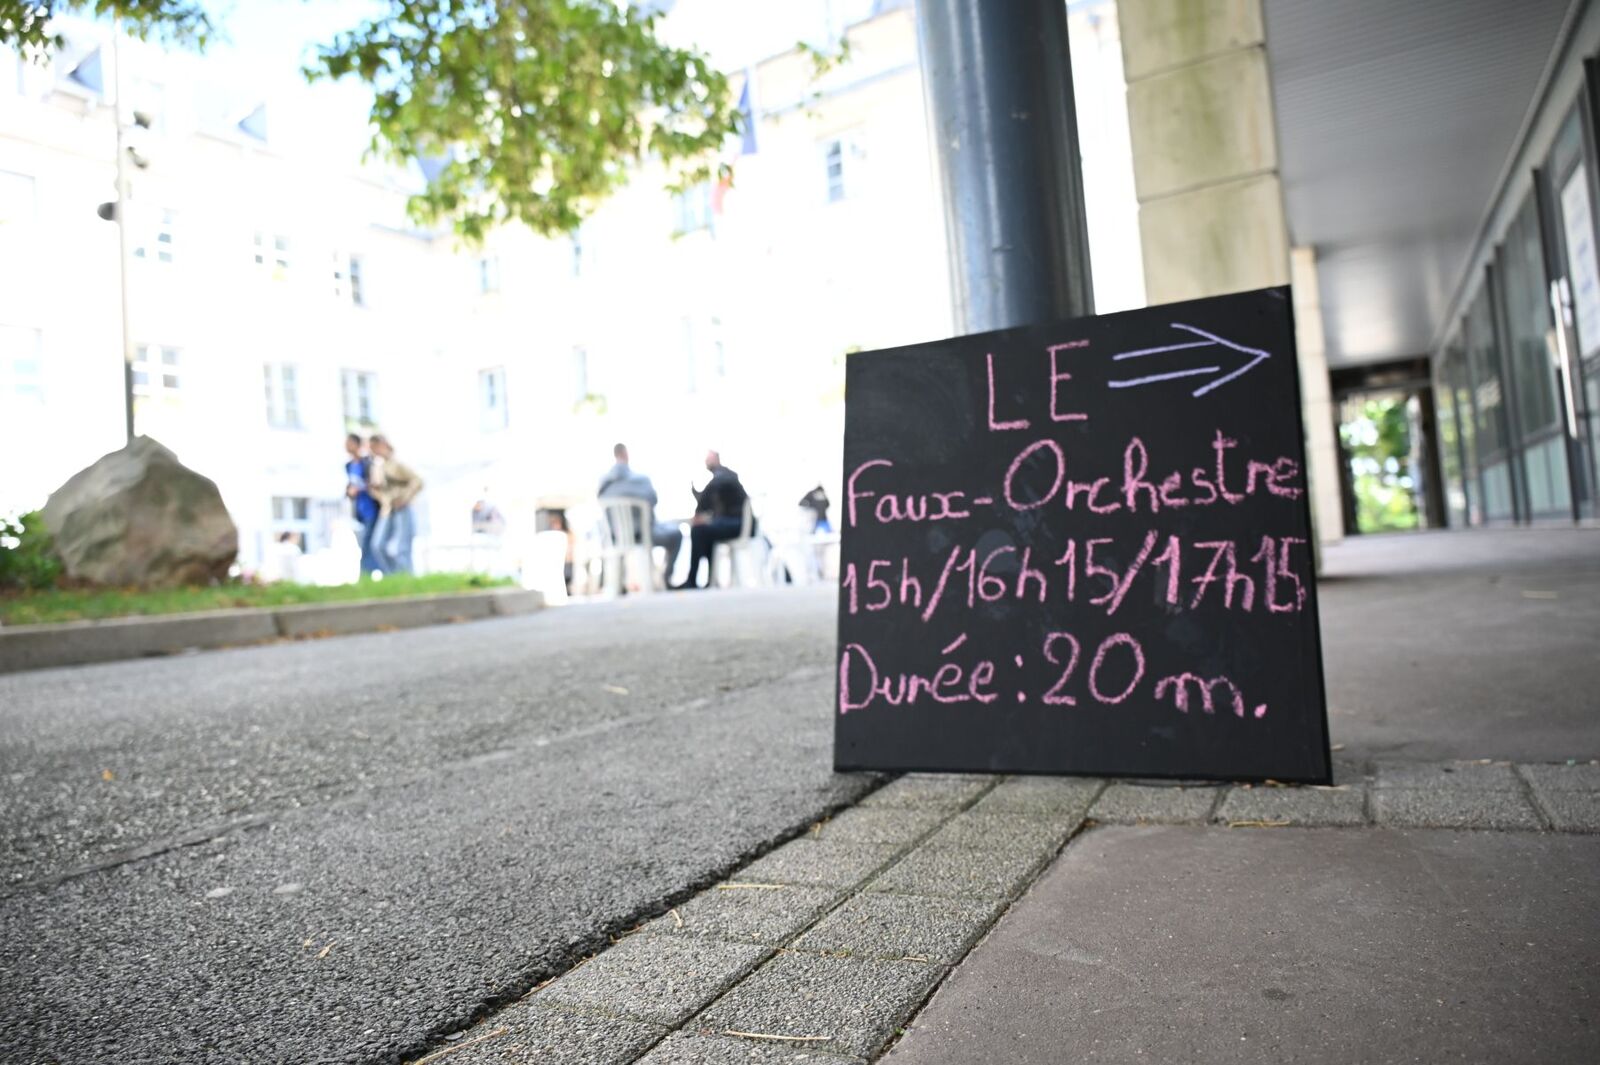 LE
Faux-Orchestre
15h/16h15/17h15
Durée : 20 m.